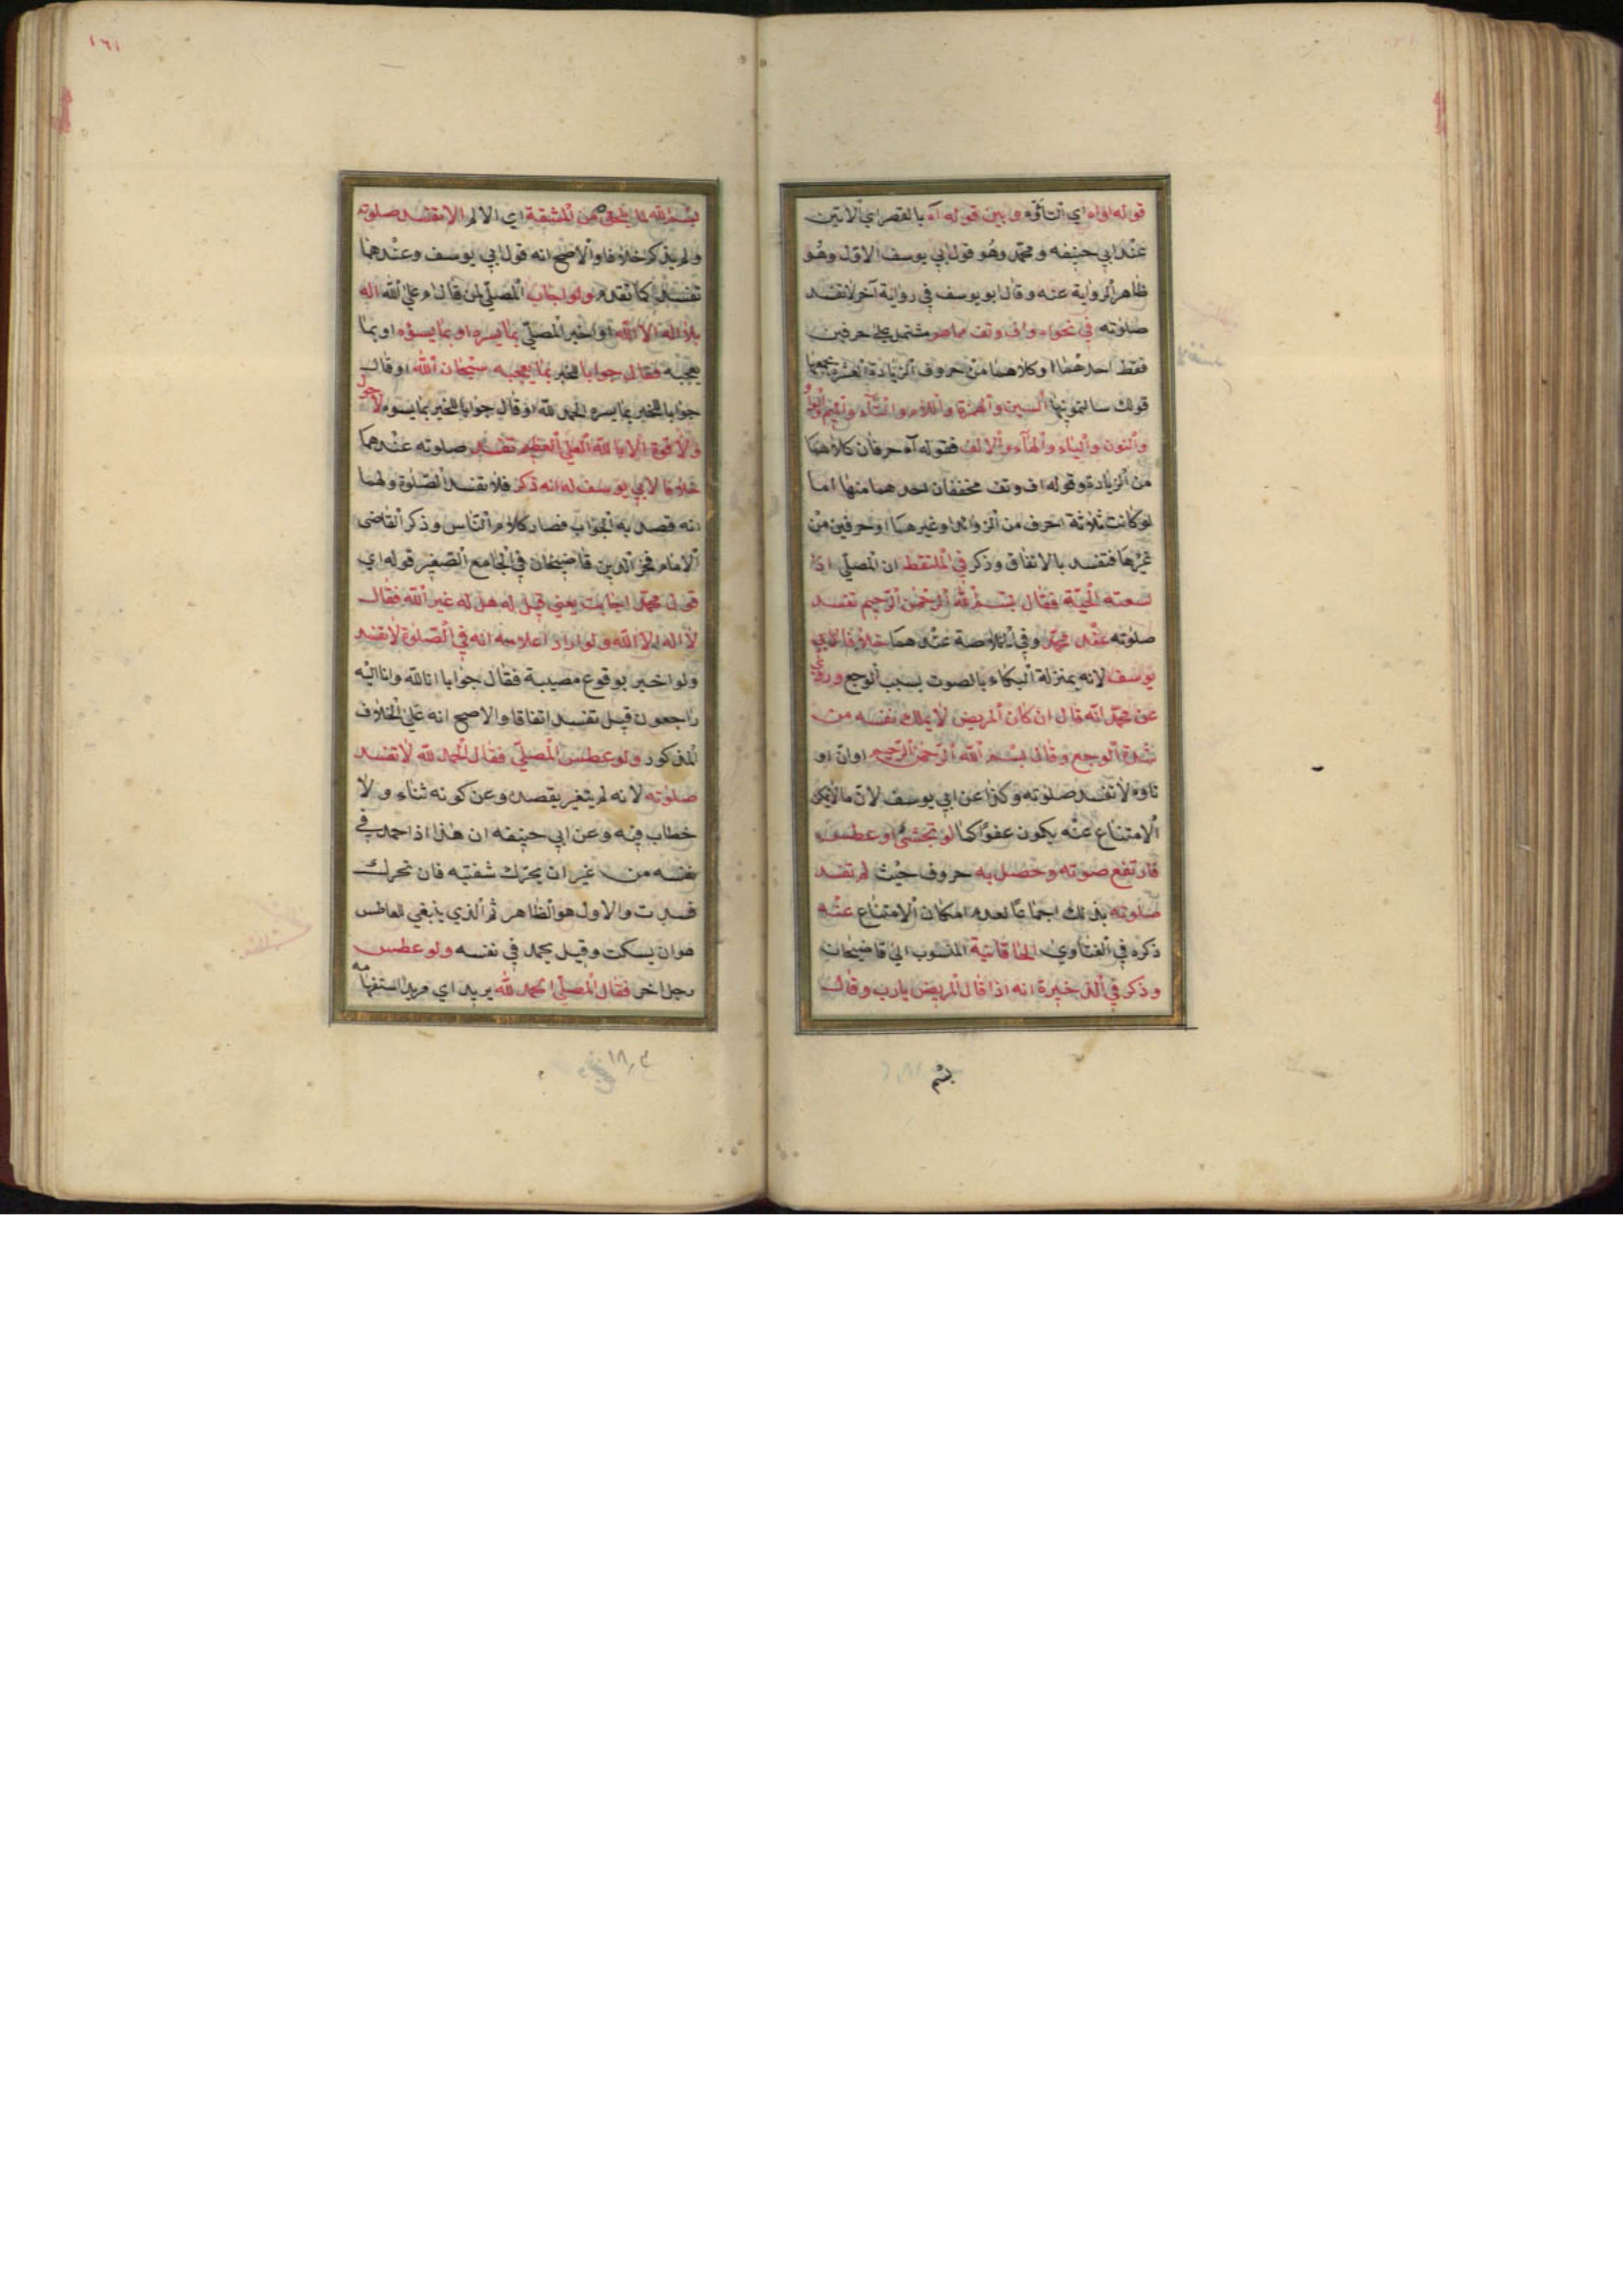 قوله اواه اي التأوّه وبين قوله آه بالقصر اي الانين
عند ابي حنيفه ومحمد وهو قول ابي يوسف الاول وهو
ظاهر الرواية عنه وقال ابو يوسف في رواية آخر لا تفسد
صلوته في نحو اه واف وتف مما هو مشتمل على حرفين
فقط احدهما او كلاهما من حروف الزيادة العشرة يجمعها
قولك سالتمونيها السين والهمزة واللام والتآء والميم والواو
والنون والياء والهآء والالف فقوله آه حرفان كلاهما
من الزيادة وقوله اف وتف مخففان احدهما منها اما
لو كانت ثلاثة احرف من الزوائد او غيرها او حرفين من
غيرها فتفسد بالاتفاق وذكر في الملتقط ان المصلي اذا
لسعته الحيّة فقال بسم الله الرحمن الرّحيم تفسد
صلوته عند محمد وفي الخلاصة عندهما خلافا لابي
يوسف لانه بمنزلة البكاء بالصوت بسبب الوجع وروي
عن محمد انّه قال ان كان المريض لا يملك نفسه من
شدة الوجع وقال بسم الله الرّحمن الرّحيم او انّ او
تاوه لا تفسد صلوته وكذا عن ابي يوسف لانّ ما لا يمكن
الامتناع عنه يكون عفوًا كما لو تجشى او عطس
فارتفع صوته وحصل به حروف حيث لم تفسد
صلوته بذلك اجماعًا لعدم امكان الامتناع عنه
ذكره في الفتاوي الخاقانية المنسوب الى قاضيخان
وذكر في الذخيرة انه اذا قال المريض يا رب وقال
بسم
١٦١
بسم الله لما يلحقه من المشقة اي الالم لا تفسد صلوته
ولم يذكر خلافا والاصح انه قول ابي يوسف وعندهما
تفسد كما تقدم ولو اجاب المصلّي لمن قال ام على الله اله
بلا اله الا الله او اخبر المصلّي بما يسره او بما يسؤه او بما
يعجبه فقال جوابا لمخبر بما يعجبه سبحان الله او قال
جوابا لمخبر بما يسره الحمد لله او قال جوابا لمخبر بما يسوءه لا حول
ولا قوة الا بالله العلي العظيم تفسد صلوته عندهما
خلافا لابي يوسف له انه ذكر فلا تفسد الصّلوة ولهما
انه قصد به الجواب فصار كلام الناس وذكر القاضى
الامام فخر الدين قاضيخان في الجامع الصغير قوله اي
قول محمّد اجابت يعني قيل له هل له غير الله فقال
لا اله الا الله ولو اراد اعلامه انه في الصّلوة لا تفسد
ولو اخبر بوقوع مصيبة فقال جوابا انا لله وانا اليه
راجعون قيل تفسد اتفاقا والاصح انه على الخلاف
المذكور ولو عطس المصلّي فقال الحمد لله لا تفسد
صلوته لانه لم يتغير بقصده وعن كونه ثناء ولا
خطاب فيه وعن ابي حنيفه ان هذا اذا حمد في
نفسه من غير ان يحرّك شفتيه فان تحرك
فسدت والاول هو الظاهر ثم الذي ينبغي للعاطس
هو ان يسكت وقيل يحمد في نفسه ولو عطس
رجل اخر فقال المصلّي الحمد لله يريد اي مريدا استفهامه